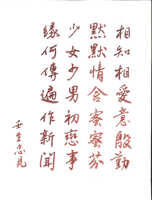 相知相愛意殷勤
默默情含蜜蜜芬
少女少男初戀事
緣何傳遍作新聞